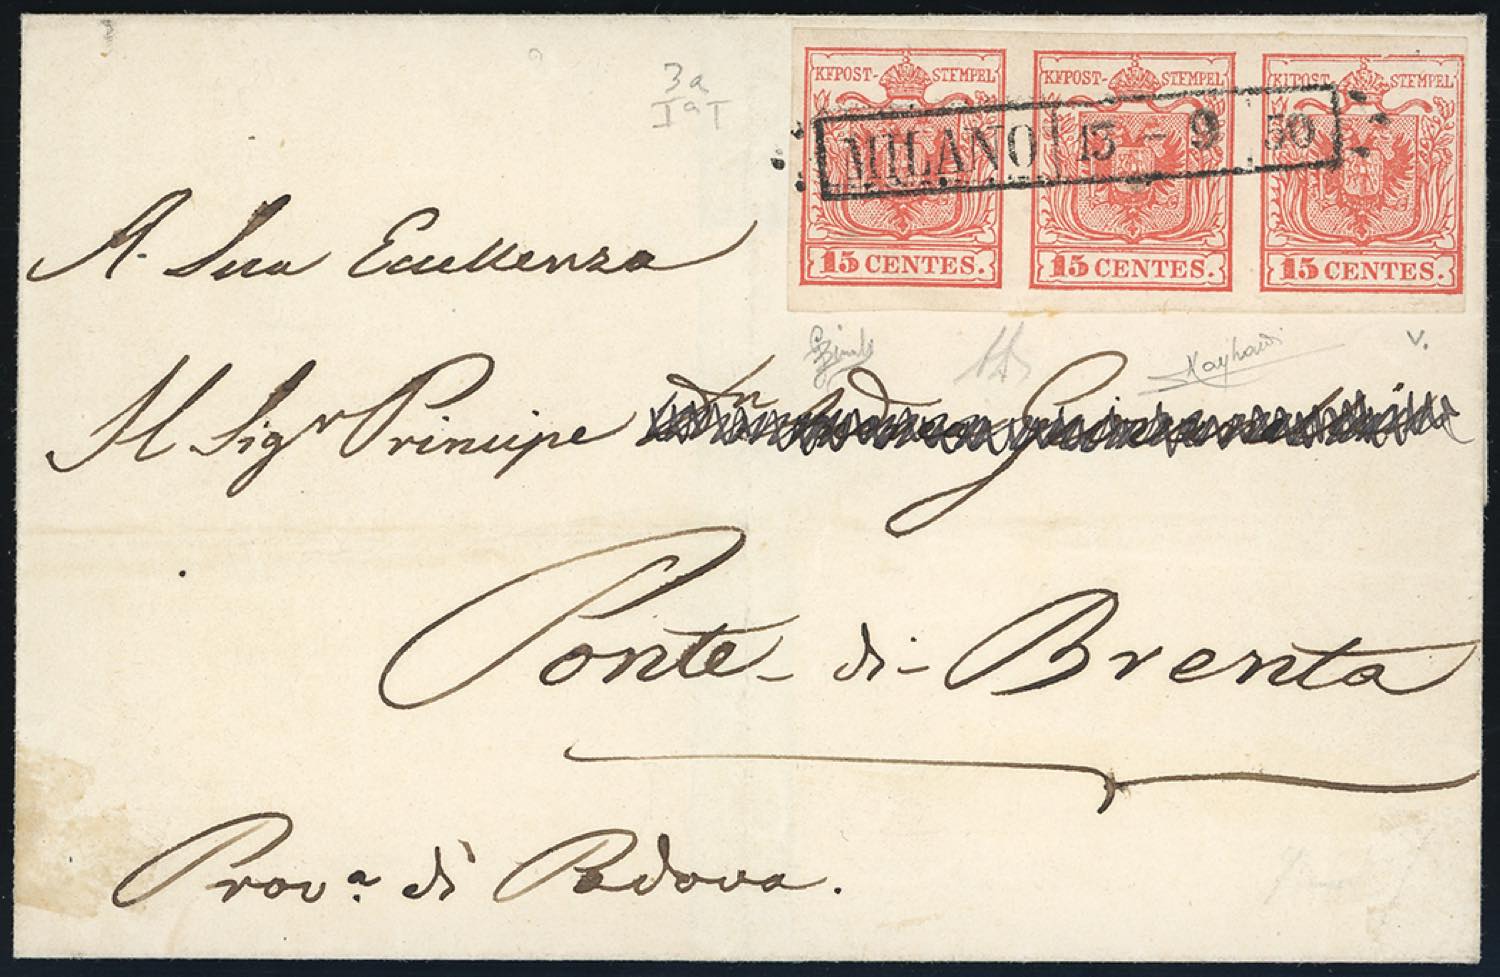 3a
KK POST-STEMPEL KK POST-STEMPEL KK POST-STEMPEL
MILANO 13 - 9 50
15 CENTES. 15 CENTES. 15 CENTES.
A. Sua Eccellenza
Il Sigr Principe
Ponte di Brenta
Prov.a di Padova.